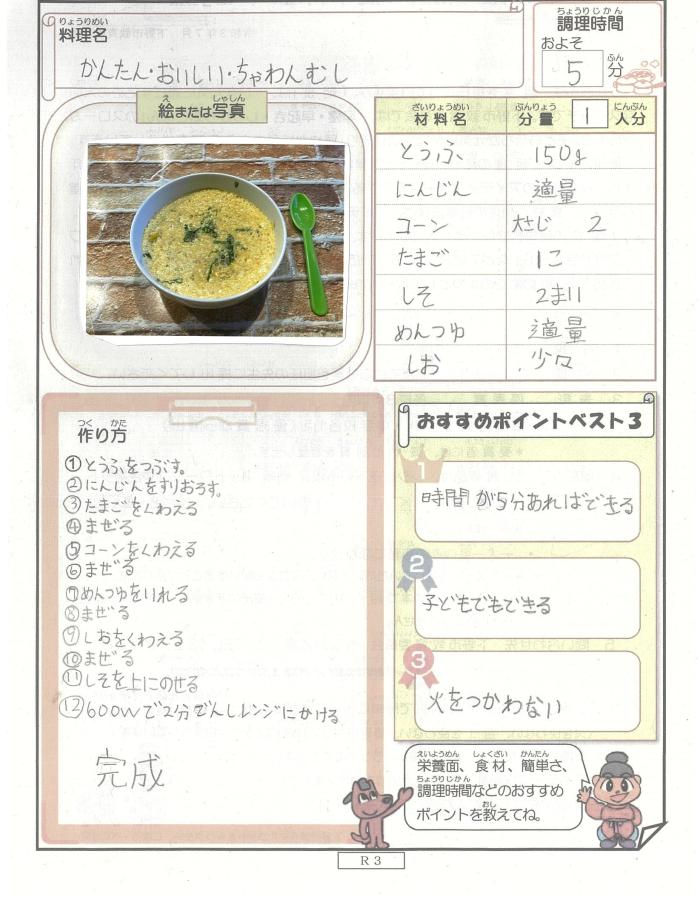 りょうりめい
料理名
かんたん・おいしい・ちゃわんむし
ちょうりじかん
調理時間
およそ
5
ぷん
分
え しゃしん
絵または写真
ざいりょうめい ぶんりょう にんぶん
材料名 分量 1 人分
とうふ 150g
にんじん 適量
コーン 大さじ 2
たまご 1こ
しそ 2まい
めんつゆ 適量
しお 少々
つく かた
作り方
①とうふをつぶす。
②にんじんをすりおろす。
③たまごをくわえる
④まぜる
⑤コーンをくわえる
⑥まぜる
⑦めんつゆをいれる
⑧まぜる
⑨しおをくわえる
⑩まぜる
⑪しそを上にのせる
⑫600Wで2分でんしレンジにかける
完成
おすすめポイントベスト3
1
時間が5分あればできる
2
子どもでもできる
3
火をつかわない
えいようめん しょくざい かんたん
栄養面、食材、簡単さ、
ちょうりじかん
調理時間などのおすすめ
おし
ポイントを教えてね。
R3